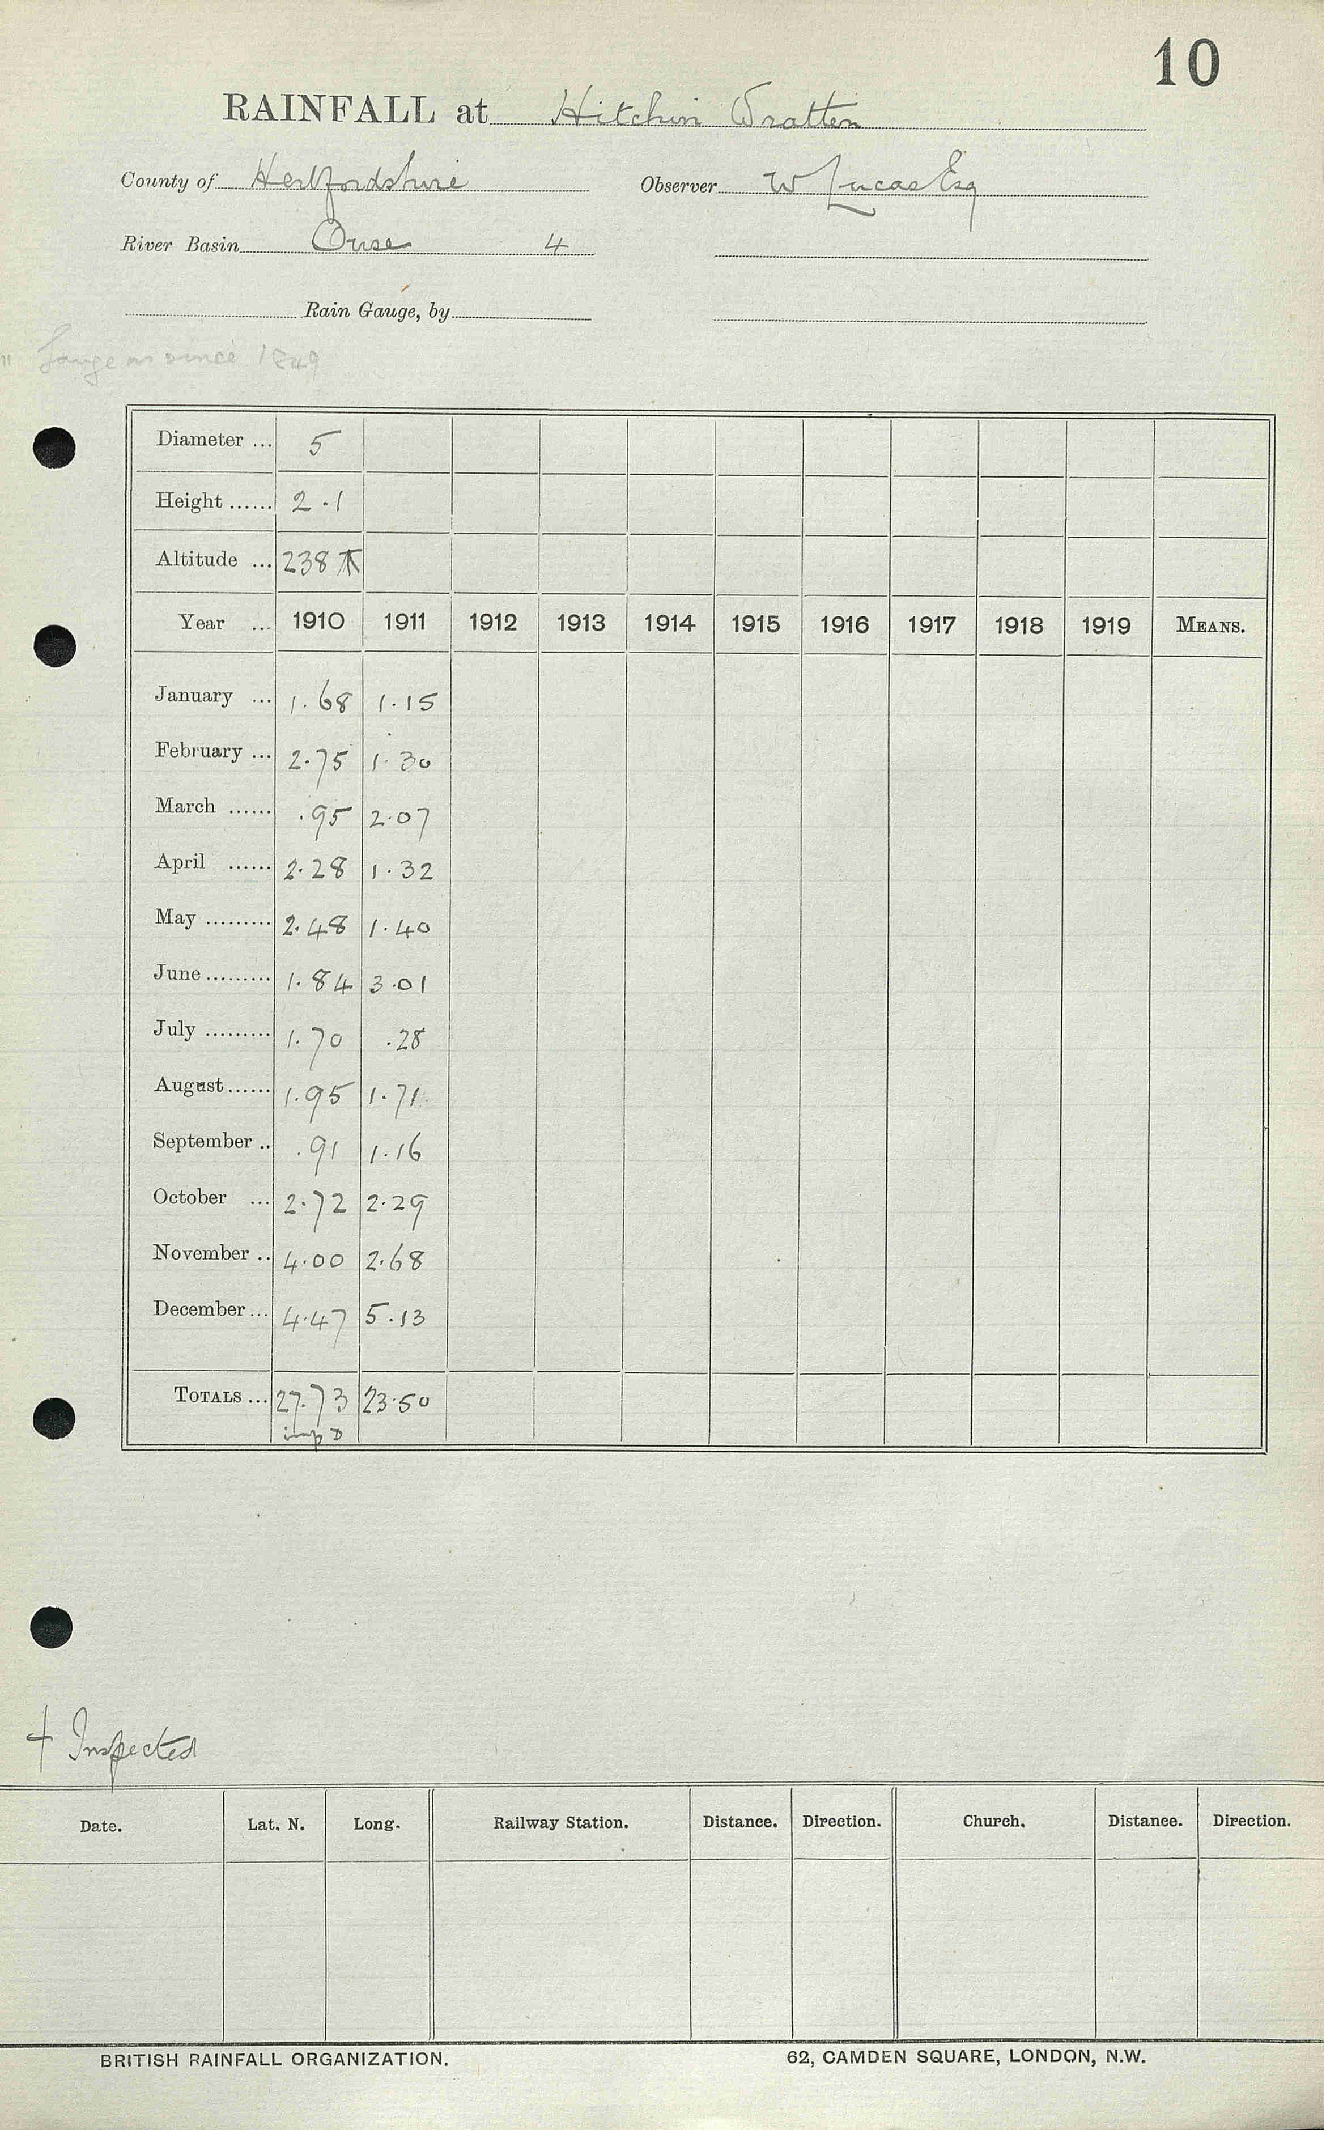 10
RAINFALL at Hitchin Wratten
County of Hertfordshire Observer W Lucas Esq
River Basin Ouse 4
Rain Gauge, by
" Gauge as since 1849
Diameter ... 5
Height ...... 2.1
Altitude ... 238
Year ... 1910 1911 1912 1913 1914 1915 1916 1917 1918 1919 MEANS.
January ... 1.68 1.15
February ... 2.75 1.30
March ...... .95 2.07
April ...... 2.28 1.32
May ......... 2.48 1.40
June ......... 1.84 3.01
July ......... 1.70 .28
August ...... 1.95 1.71
September .. .91 1.16
October ... 2.72 2.29
November .. 4.00 2.68
December ... 4.47 5.13
TOTALS ... 27.73 23.50
† Inspected
Date. Lat. N. Long. Railway Station. Distance. Direction. Church. Distance. Direction.
BRITISH RAINFALL ORGANIZATION. 62, CAMDEN SQUARE, LONDON, N.W.